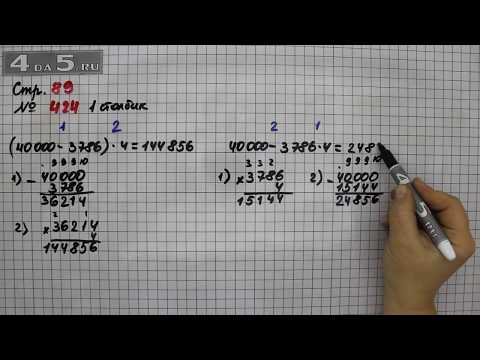 4 DA 5.RU
Стр. 89
№ 424 1 столбик
1 2
(40000 - 3786) · 4 = 144856
9 9 9 10
1) - 40000
3786
36214
2 1
2) × 36214
4
144856
2 1
40000 - 3786 · 4 = 248
3 3 2
1) × 3786
4
15144
9 9 9 10
2) - 40000
15144
24856
4 5